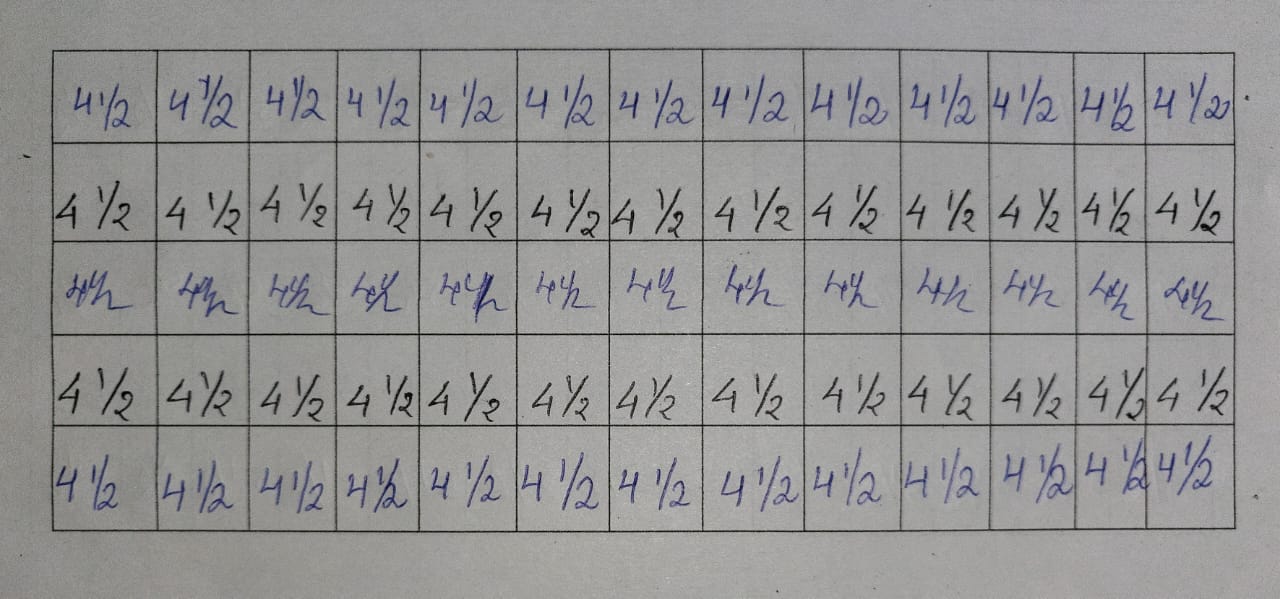 4 1/2 4 1/2 4 1/2 4 1/2 4 1/2 4 1/2 4 1/2 4 1/2 4 1/2 4 1/2 4 1/2 4 1/2 4 1/2
4 1/2 4 1/2 4 1/2 4 1/2 4 1/2 4 1/2 4 1/2 4 1/2 4 1/2 4 1/2 4 1/2 4 1/2 4 1/2
4 1/2 4 1/2 4 1/2 4 1/2 4 1/2 4 1/2 4 1/2 4 1/2 4 1/2 4 1/2 4 1/2 4 1/2 4 1/2
4 1/2 4 1/2 4 1/2 4 1/2 4 1/2 4 1/2 4 1/2 4 1/2 4 1/2 4 1/2 4 1/2 4 1/2 4 1/2
4 1/2 4 1/2 4 1/2 4 1/2 4 1/2 4 1/2 4 1/2 4 1/2 4 1/2 4 1/2 4 1/2 4 1/2 4 1/2